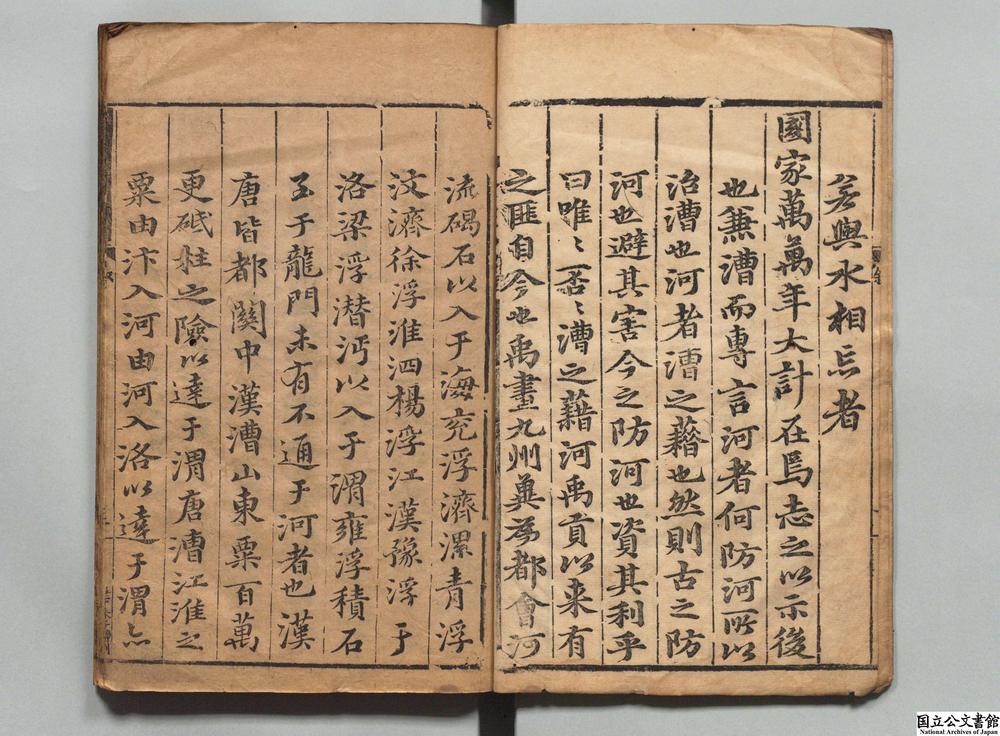 若與水相忘者
國家萬萬年大計在焉志之以示後
也兼漕而專言河者何防河所以
治漕也河者漕之藉也然則古之防
河也避其害今之防河也資其利乎
曰唯〻否〻漕之藉河禹貢以来有
之匪自今也禹畫九州冀為都會河
流碣石以入于海兖浮濟漯青浮
汶濟徐浮淮泗楊浮江漢豫浮于
洛梁浮潜沔以入于渭雍浮積石
至于龍門未有不通于河者也漢
唐皆都関中漢漕山東粟百萬
更砥柱之險以達于渭唐漕江淮之
粟由汴入河由河入洛以達于渭亦
国立公文書館
National Archives of Japan